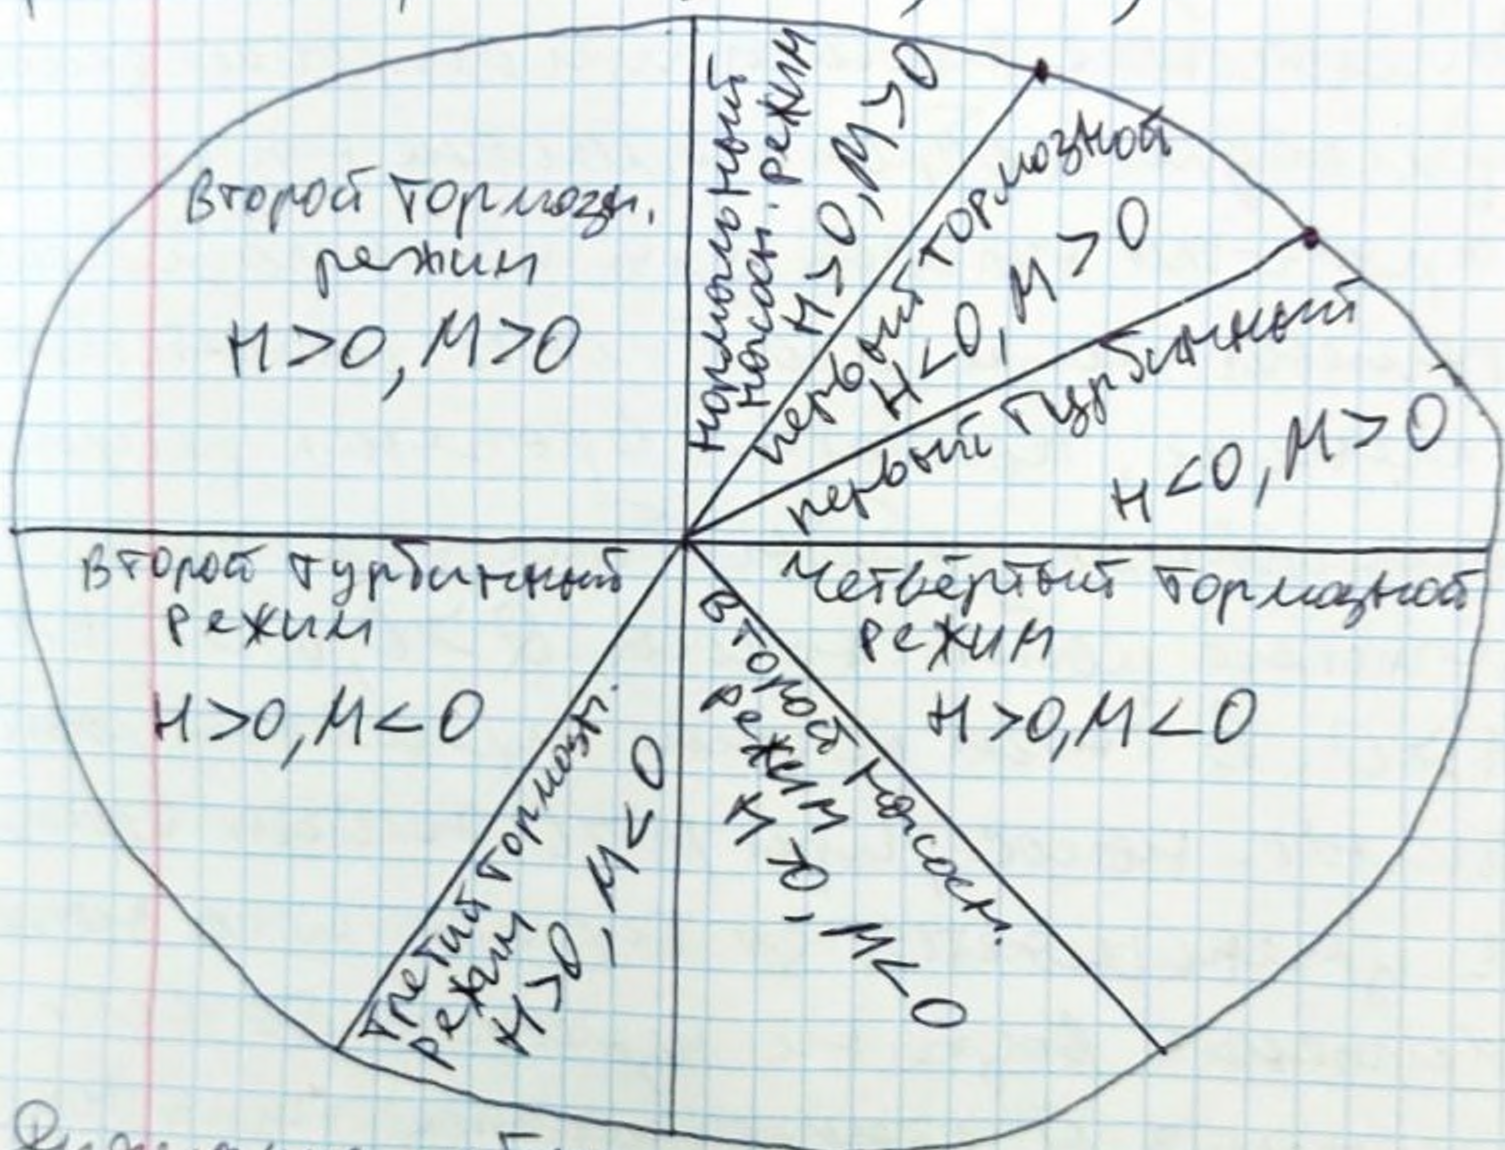 Второй тормозн.
режим
H>0, M>0
нормальный
насосн. режим
H>0, M>0
первый тормозной
H<0, M>0
первый турбинный
H<0, M>0
Второй турбинный
режим
H>0, M<0
Третий тормозн.
режим
H>0, M<0
Второй насосн.
режим
H>0, M<0
Четвёртый тормозной
режим
H>0, M<0